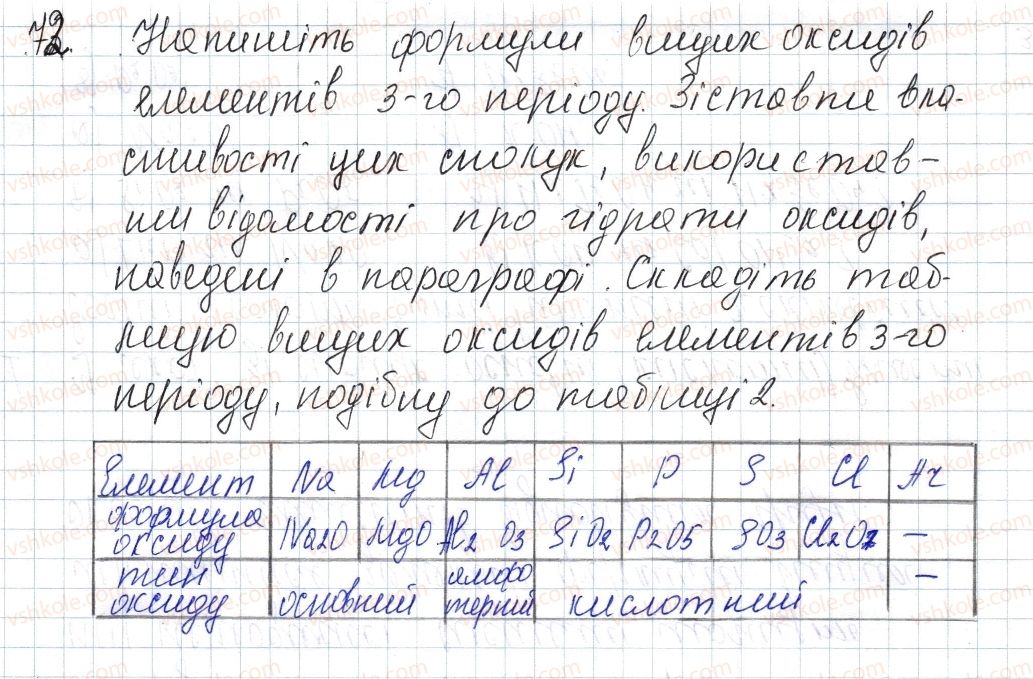 72. Напишіть формули вищих оксидів
елементів 3-го періоду. Зіставте вла-
стивості цих сполук, використав-
ши відомості про гідрати оксидів,
наведені в параграфі. Складіть таб-
лицю вищих оксидів елементів 3-го
періоду, подібну до таблиці 2.
Елемент Na Mg Al Si P S Cl Ar
формула оксиду Na2O MgO Al2O3 SiO2 P2O5 SO3 Cl2O7 —
тип оксиду основний амфотерний кислотний —